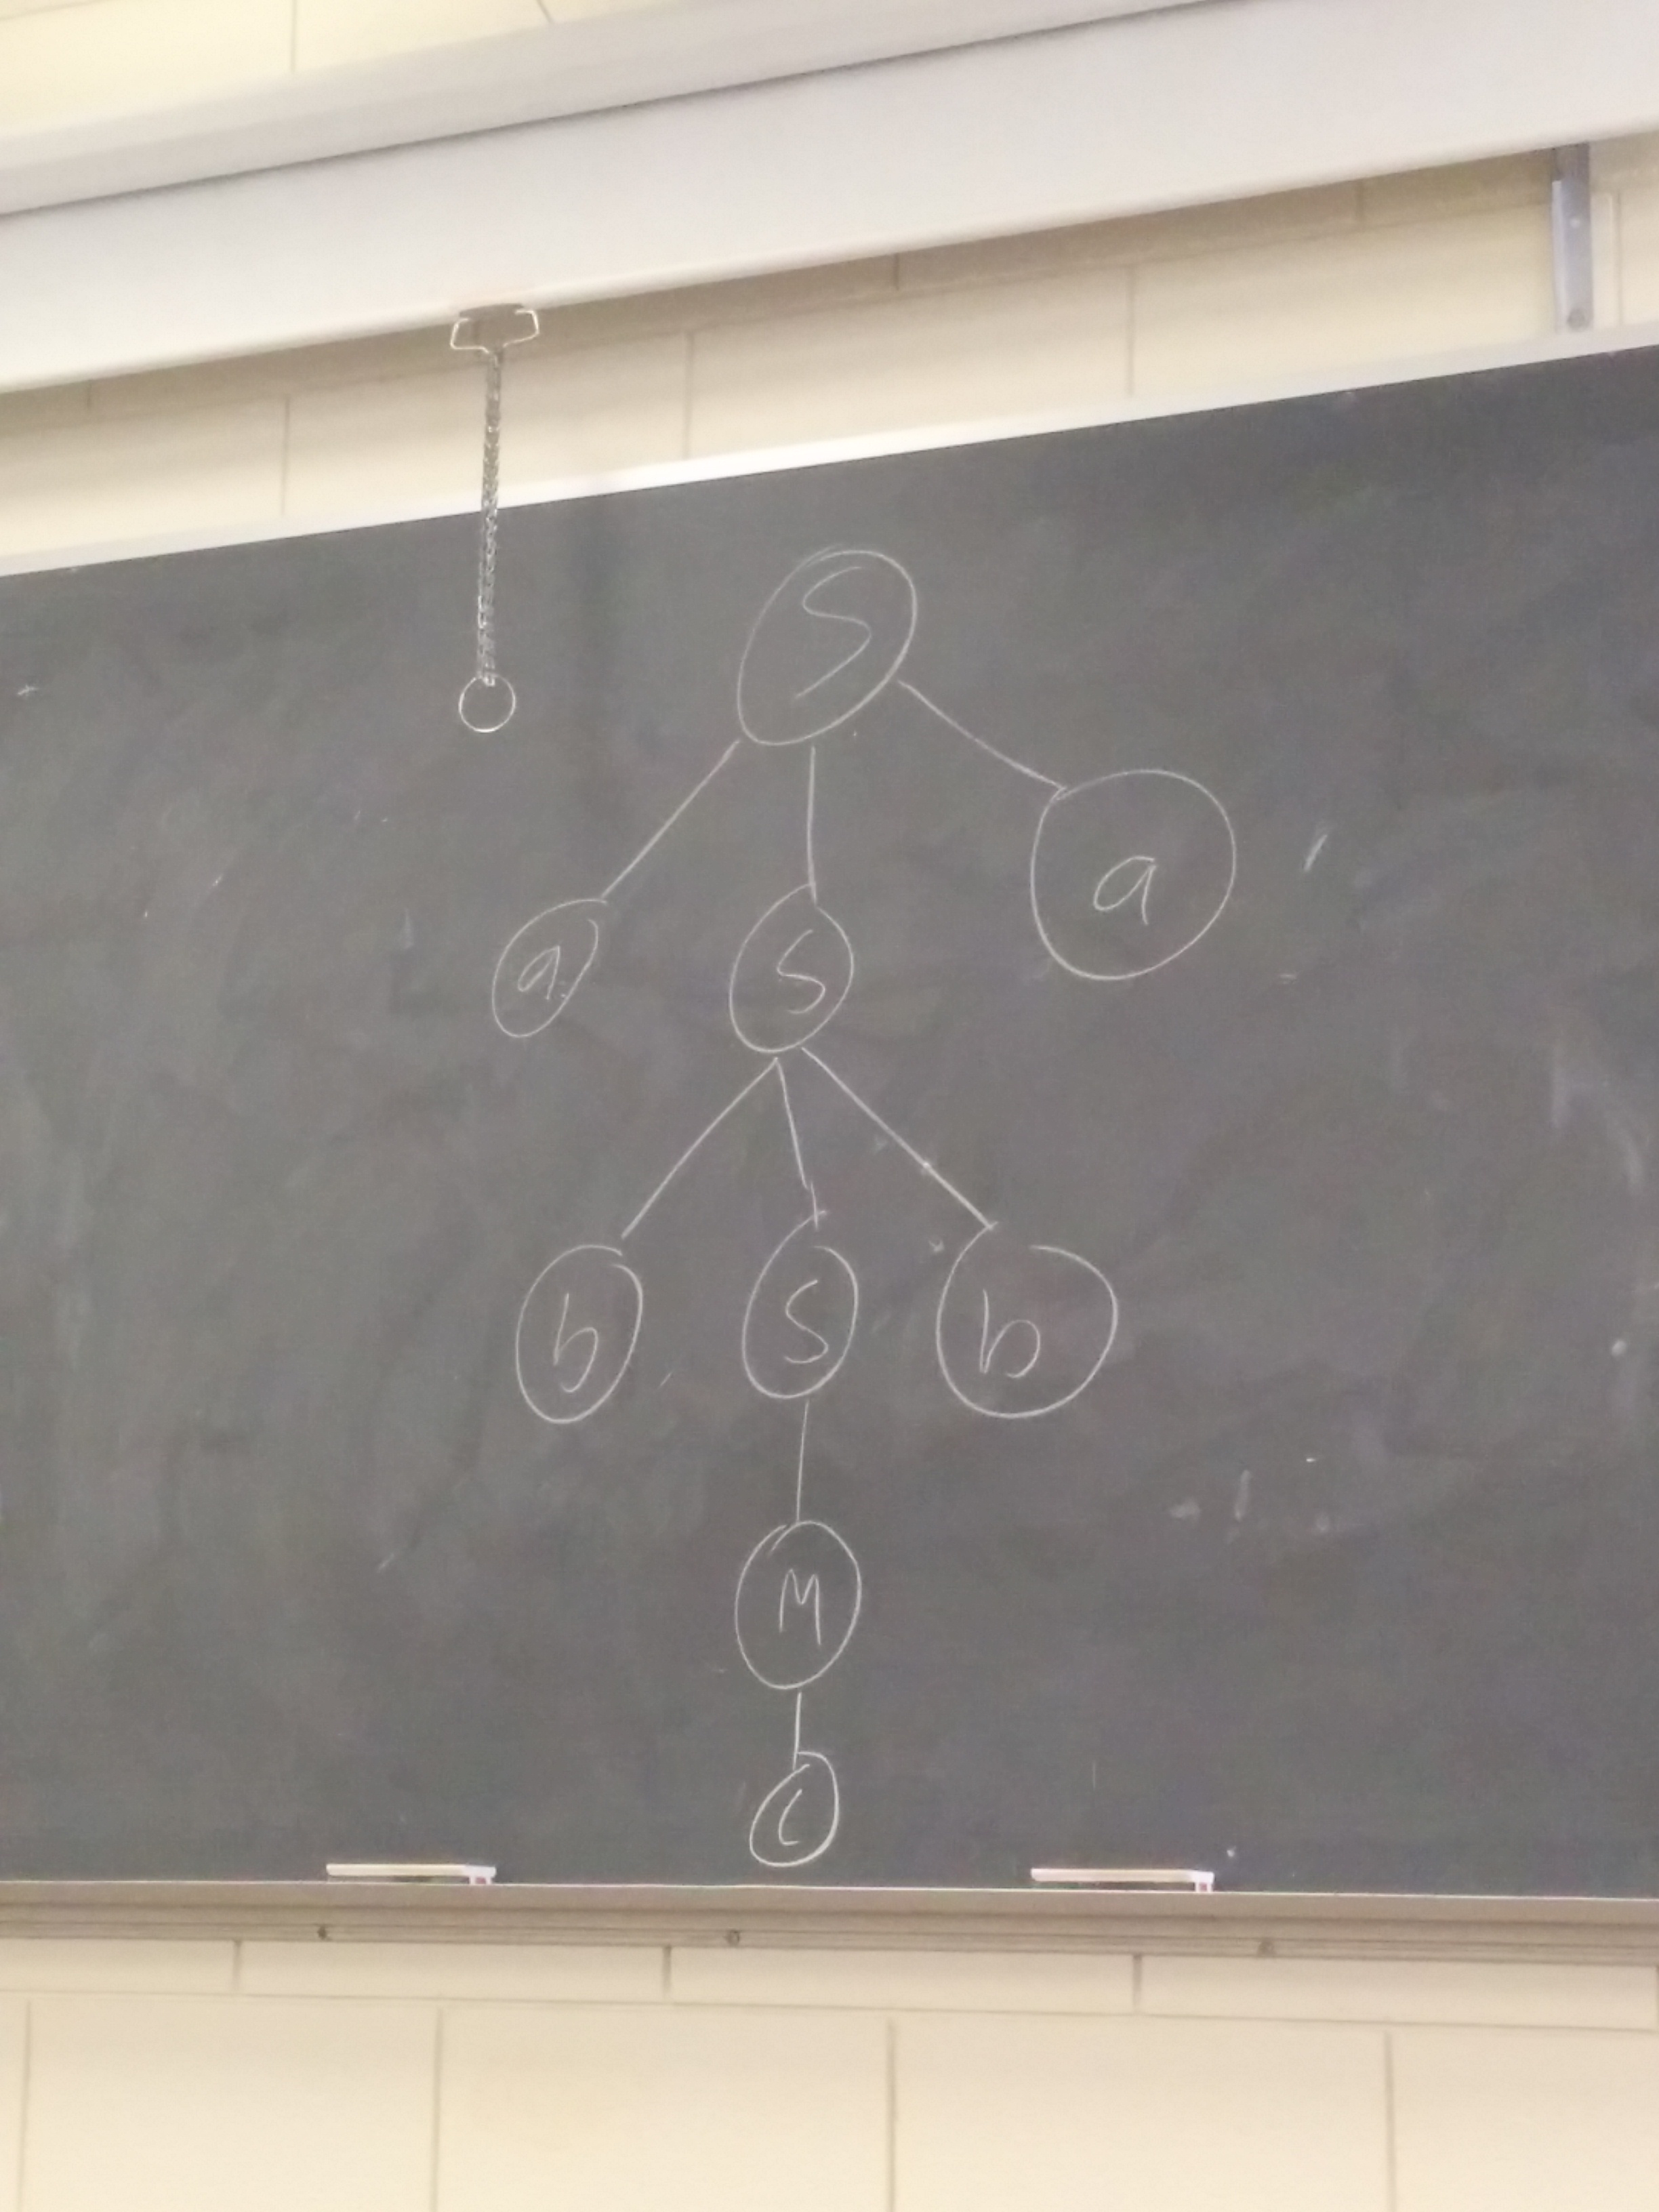 S
a S a
b S b
M
c